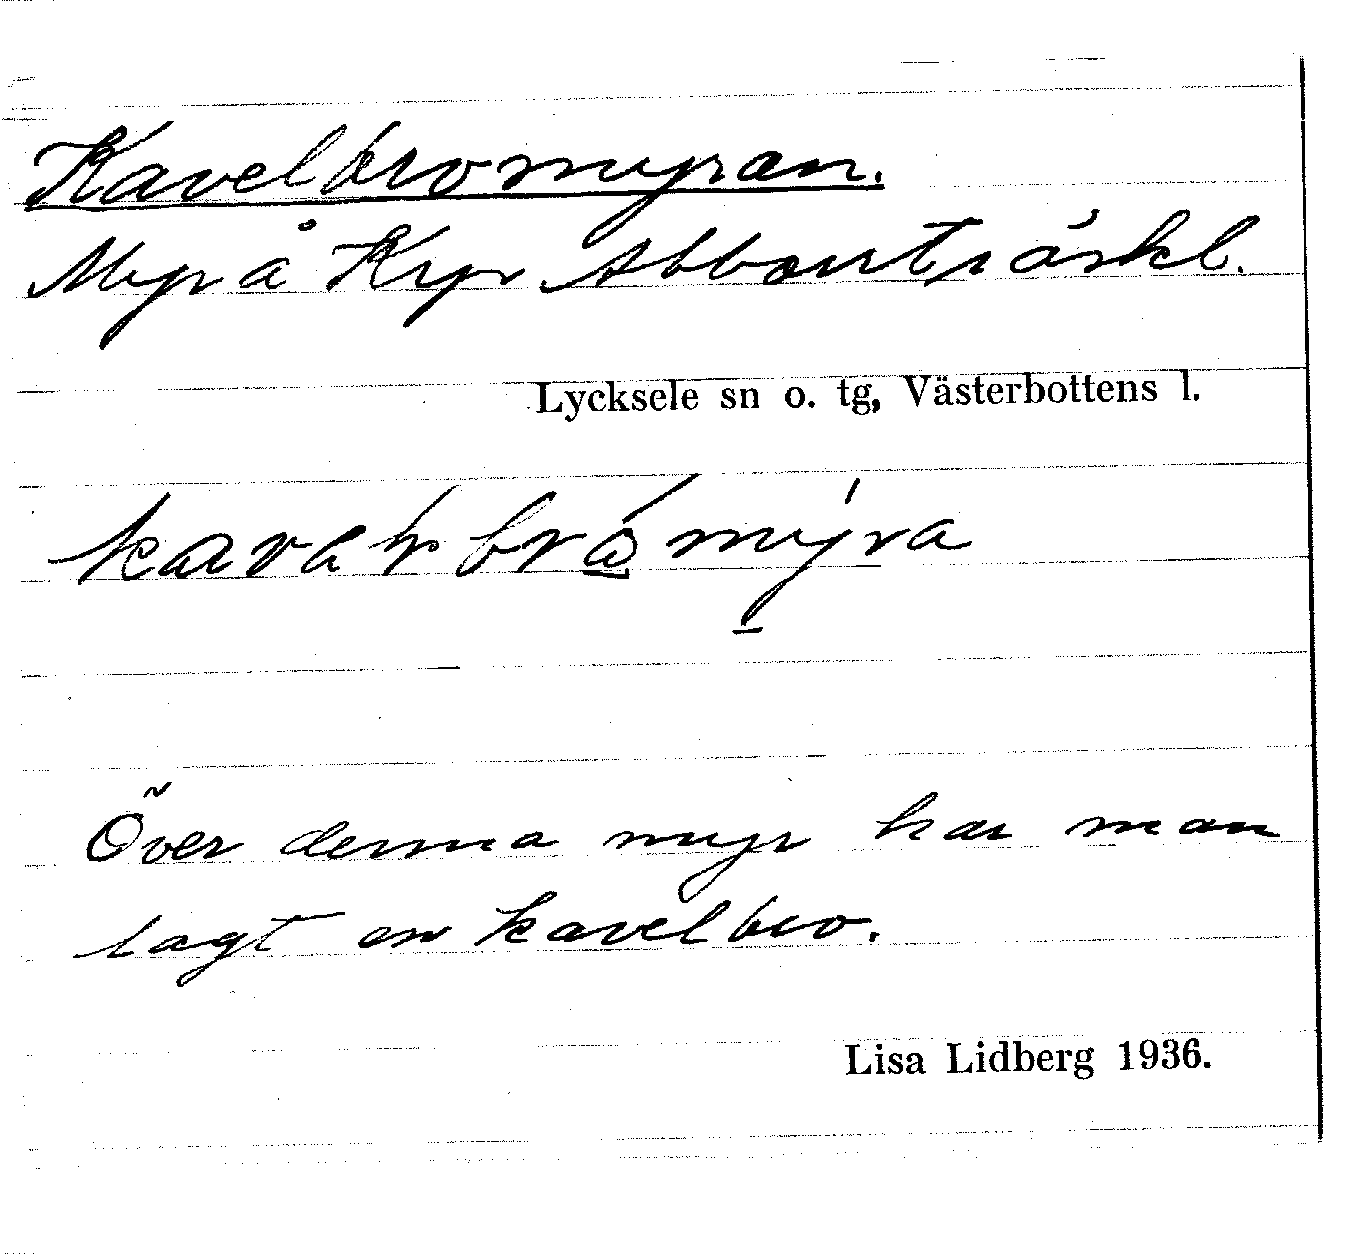 Kavelbromyran.
Myr å Kyr Abborrträskl.
Lycksele sn o. tg, Västerbottens l.
Över denna myr har man
lagt en kavelbro.
Lisa Lidberg 1936.